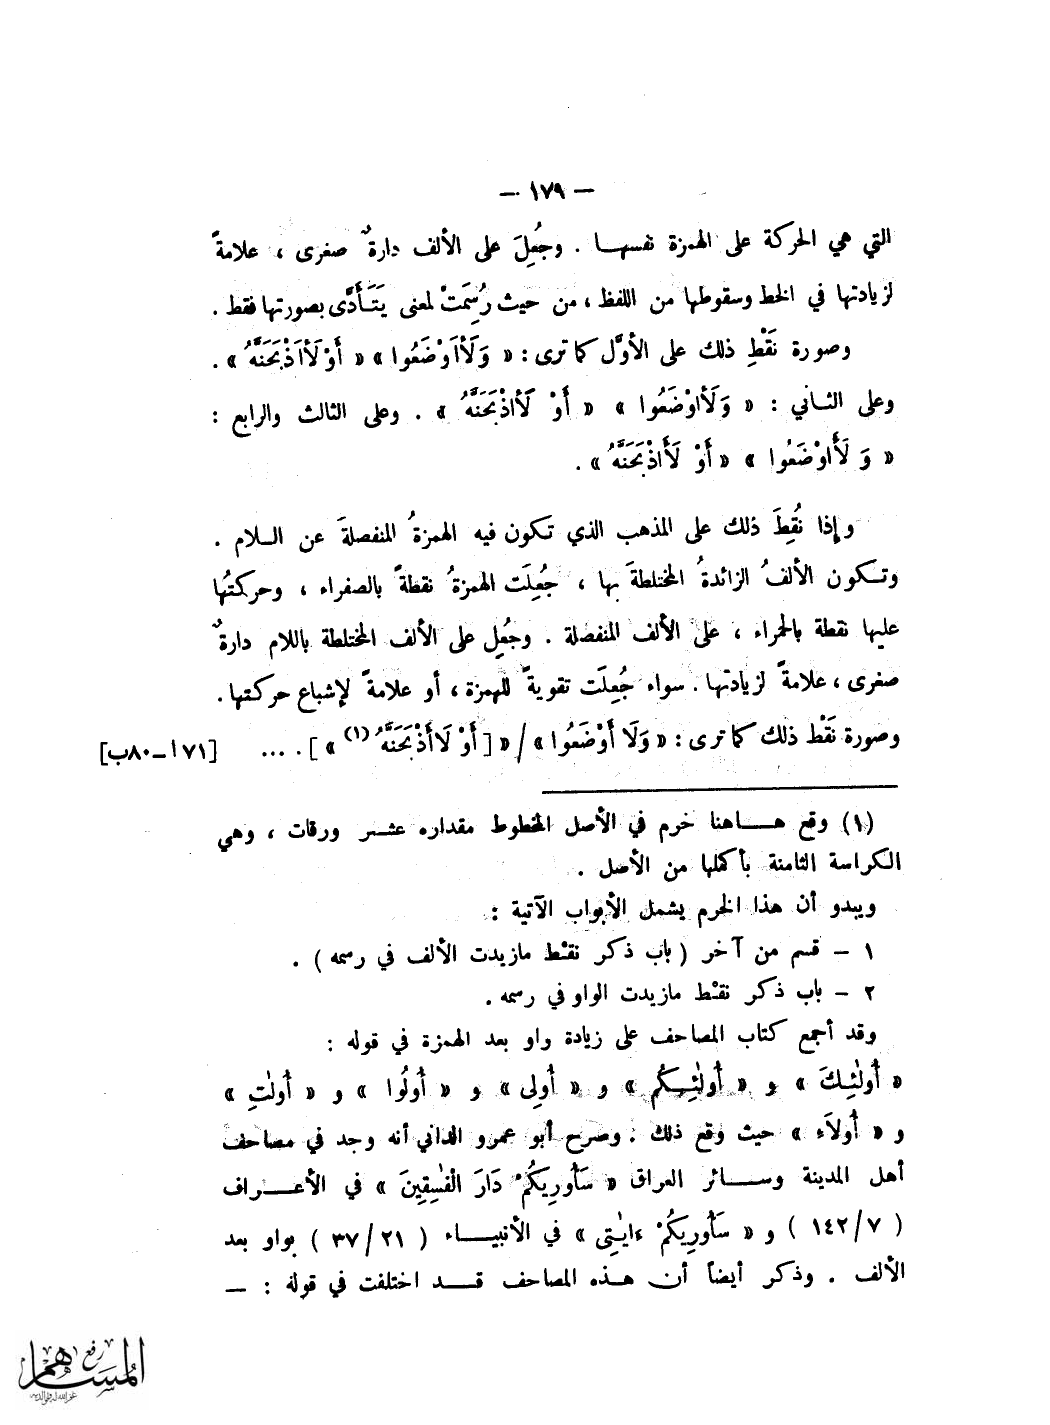 — ١٧٩ —
التي هي الحركة على الهمزة نفسهـا . وجُعِلَ على الألف دارةٌ صغرى ، علامةً
لزيادتها في الخط وسقوطها من اللفظ ، من حيث رُسِمَتْ لمعنى يَتَأَدَّى بصورتها فقط .
وصورة نَقْطِ ذلك على الأوَّل كما ترى : « وَلَأاَوْضَعُوا » « أَوْ لَأاَذْبَحَنَّهُ » .
وعلى الثـاني : « وَلَأاوْضَعُوا » « أَوْ لَأاذْبَحَنَّهُ » . وعلى الثالث والرابع :
« وَ لَأَاوْضَعُوا » « أَوْ لَأَاذْبَحَنَّهُ » .
وإذا نُقِطَ ذلك على المذهب الذي تكون فيه الهمزةُ المنفصلةَ عن الـلام .
وتـكون الألفُ الزائدةُ المختلطةَ بها ، جُعِلَت الهمزةُ نقطةً بالصفراء ، وحركتُها
عليها نقطة بالحمراء ، على الألف المنفصلة . وجُعِل على الألف المختلطة باللام دارةٌ
صغرى ، علامةً لزيادتها . سواء جُعِلَت تقويةً للهمزة ، أو علامةً لإشباع حركتها .
وصورة نَقْط ذلك كما ترى : « وَلَا أَوْضَعُوا » / « [ أَوْ لَاأَذْبَحَنَّهُ (١) » ] . ... [٧١أ ـ ٨٠ب]
(١) وقع هـــاهنا خرم في الأصل المخطوط مقداره عشـر ورقات ، وهي
الكراسة الثامنة بأكملها من الأصل .
ويبدو أن هذا الخرم يشمل الأبواب الآتية :
١ – قسم من آخر ( باب ذكر نقـْط مازيدت الألف في رسمه ) .
٢ – باب ذكر نقـْط مازيدت الواو في رسمه .
وقد أجمع كتاب المصاحف على زيادة واو بعد الهمزة في قوله :
« أُولٰئِكَ » و « أُولٰئِـكُم » و « أُولِى » و « أُولُوا » و « أُولٰتِ »
و « أُولَاءِ » حيث وقع ذلك . وصرح أبو عمرو الداني أنه وجد في مصاحف
أهل المدينة وســـائر العراق « سَأُورِيكُمْ دَارَ الْفٰسِقِينَ » في الأعـــراف
( ٧/١٤٢ ) و « سَأُورِيكُمْ ءايٰتِى » في الأنبيـــاء ( ٢١/٣٧ ) بواو بعد
الألف . وذكر أيضاً أن هـذه المصاحف قـــد اختلفت في قوله : —
رفع
المساهم
غفر الله له ولوالديه